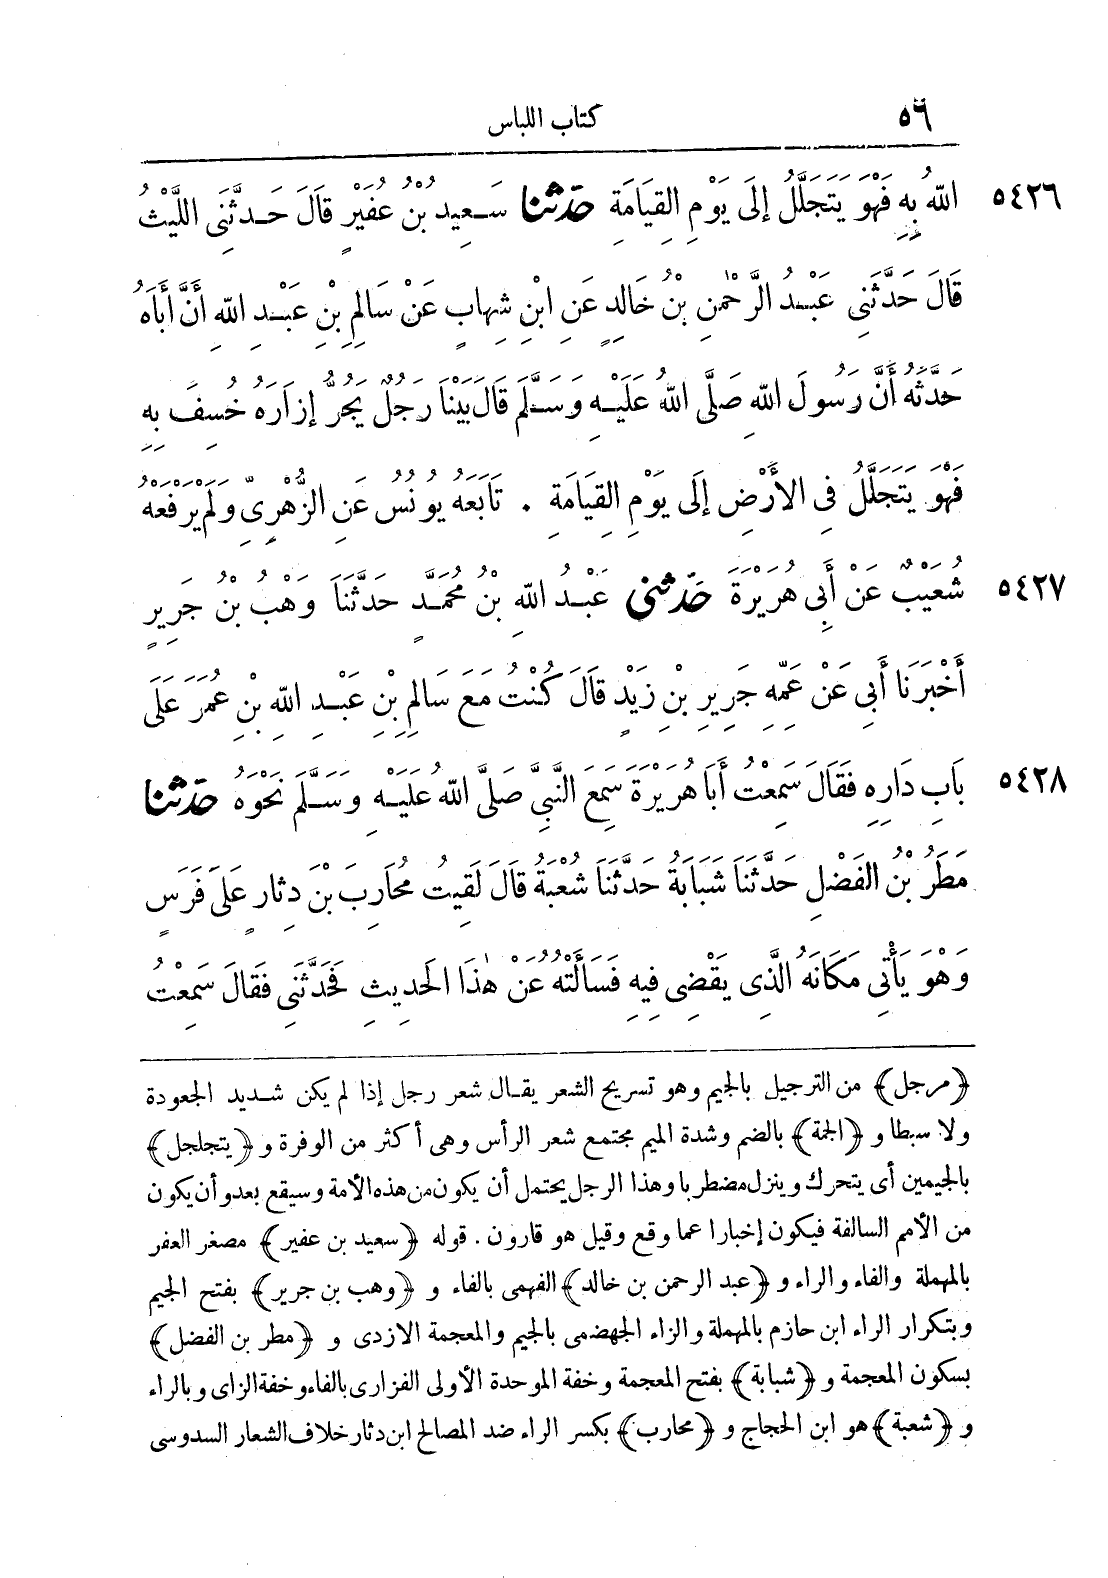 ٥٦
كتاب اللباس
٥٤٢٦ اللهُ بِهِ فَهْوَ يَتَجَلَّلُ إِلَى يَوْمِ القِيَامَةِ حَدَّثَنَا سَعِيدُ بْنُ عُفَيْرٍ قَالَ حَدَّثَنِى اللَّيْثُ
قَالَ حَدَّثَنِى عَبْدُ الرَّحْمٰنِ بْنُ خَالِدٍ عَنِ ابْنِ شِهَابٍ عَنْ سَالِمِ بْنِ عَبْدِ اللهِ أَنَّ أَبَاهُ
حَدَّثَهُ أَنَّ رَسُولَ اللهِ صَلَّى اللهُ عَلَيْهِ وَسَلَّمَ قَالَ بَيْنَا رَجُلٌ يَجُرُّ إِزَارَهُ خُسِفَ بِهِ
فَهْوَ يَتَجَلَّلُ فِى الأَرْضِ إِلَى يَوْمِ القِيَامَةِ . تَابَعَهُ يُونُسُ عَنِ الزُّهْرِىِّ وَلَمْ يَرْفَعْهُ
٥٤٢٧ شُعَيْبٌ عَنْ أَبِى هُرَيْرَةَ حَدَّثَنِى عَبْدُ اللهِ بْنُ مُحَمَّدٍ حَدَّثَنَا وَهْبُ بْنُ جَرِيرٍ
أَخْبَرَنَا أَبِى عَنْ عَمِّهِ جَرِيرِ بْنِ زَيْدٍ قَالَ كُنْتُ مَعَ سَالِمِ بْنِ عَبْدِ اللهِ بْنِ عُمَرَ عَلَى
٥٤٢٨ بَابِ دَارِهِ فَقَالَ سَمِعْتُ أَبَا هُرَيْرَةَ سَمِعَ النَّبِىَّ صَلَّى اللهُ عَلَيْهِ وَسَلَّمَ نَحْوَهُ حَدَّثَنَا
مَطَرُ بْنُ الفَضْلِ حَدَّثَنَا شَبَابَةُ حَدَّثَنَا شُعْبَةُ قَالَ لَقِيتُ مُحَارِبَ بْنَ دِثَارٍ عَلَى فَرَسٍ
وَهْوَ يَأْتِى مَكَانَهُ الَّذِى يَقْضِى فِيهِ فَسَأَلْتُهُ عَنْ هٰذَا الحَدِيثِ فَحَدَّثَنِى فَقَالَ سَمِعْتُ
﴿مرجل﴾ من الترجيل بالجيم وهو تسريح الشعر يقال شعر رجل إذا لم يكن شديد الجعودة
ولا سبطا و ﴿الجمة﴾ بالضم وشدة الميم مجتمع شعر الرأس وهى أكثر من الوفرة و ﴿يتجلجل﴾
بالجيمين أى يتحرك وينزل مضطربا وهذا الرجل يحتمل أن يكون من هذه الأمة وسيقع بعد وأن يكون
من الأمم السالفة فيكون إخبارا عما وقع وقيل هو قارون . قوله ﴿سعيد بن عفير﴾ مصغر العفر
بالمهملة والفاء والراء و ﴿عبد الرحمن بن خالد﴾ الفهمى بالفاء و ﴿وهب بن جرير﴾ بفتح الجيم
وبتكرار الراء ابن حازم بالمهملة والزاء الجهضمى بالجيم والمعجمة الازدى و ﴿مطر بن الفضل﴾
بسكون المعجمة و ﴿شبابة﴾ بفتح المعجمة وخفة الموحدة الأولى الفزارى بالفاء وخفة الزاى وبالراء
و ﴿شعبة﴾ هو ابن الحجاج و ﴿محارب﴾ بكسر الراء ضد المصالح ابن دثار خلاف الشعار السدوسى